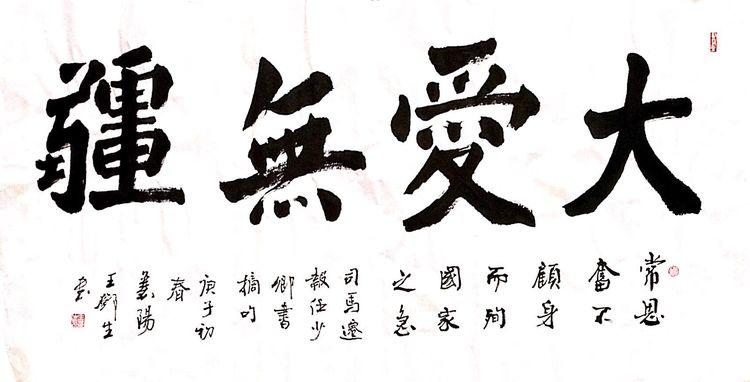 大愛無疆
常思
奮不
顧身
而殉
國家
之急
司馬遷
報任少
卿書
摘句
庚子初
春
襄陽
書